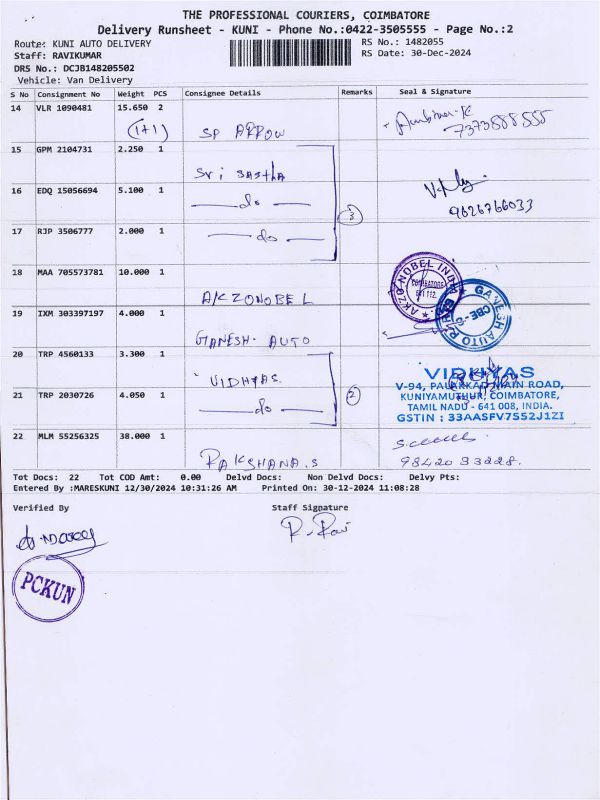 THE PROFESSIONAL COURIERS, COIMBATORE
Delivery Runsheet - KUNI - Phone No.:0422-3505555 - Page No.:2
Route: KUNI AUTO DELIVERY
RS No.: 1482055
Staff: RAVIKUMAR
RS Date: 30-Dec-2024
DRS No.: DCJB148205502
Vehicle: Van Delivery
S No Consignment No Weight PCS Consignee Details Remarks Seal & Signature
14 VLR 1090481 15.650 2
(1+1) SP ARROW
7373588555
15 GPM 2104731 2.250 1
Sri SASTHA
16 EDQ 15056694 5.100 1
do
3
9626766033
17 RJP 3506777 2.000 1
do
18 MAA 705573781 10.000 1
AKZONOBEL
AKZO NOBEL INDIA
COIMBATORE
641 112
19 IXM 303397197 4.000 1
GANESH AUTO
GANESH AUTO
CBE-8
20 TRP 4560133 3.300 1
VIDHYAS
21 TRP 2030726 4.050 1
do
2
VIDHYAS
V-94, PALAKKAD MAIN ROAD,
KUNIYAMUTHUR, COIMBATORE,
TAMIL NADU - 641 008, INDIA.
GSTIN : 33AASFV7552J1ZI
22 MLM 55256325 38.000 1
RAKSHANA.S
9842033228.
Tot Docs: 22 Tot COD Amt: 0.00 Delvd Docs: Non Delvd Docs: Delvy Pts:
Entered By :MARESKUNI 12/30/2024 10:31:26 AM Printed On: 30-12-2024 11:08:28
Verified By Staff Signature
R. Ravi
PCKUN